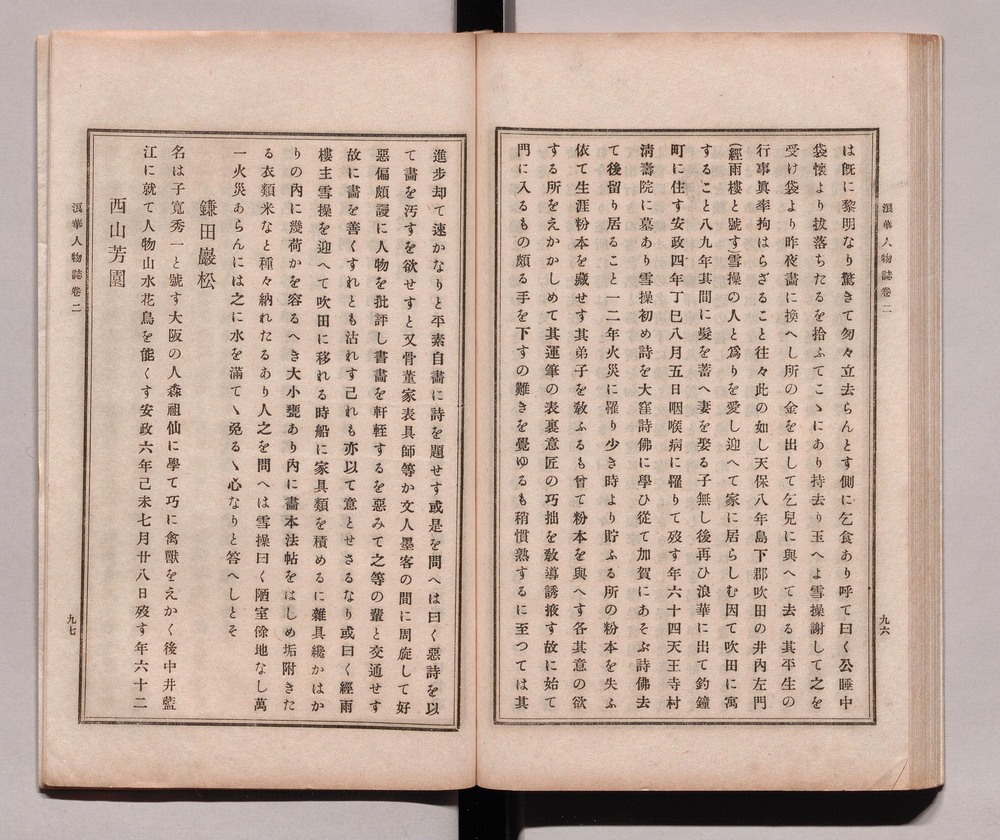 浪華人物誌卷二
は旣に黎明なり驚きて匆々立去らんとす側に乞食あり呼て曰く公睡中
袋懷より拔落ちたるを拾ふてこゝにあり持去り玉へよ雪操謝して之を
受け袋より昨夜畵に換へし所の金を出して乞兒に與へて去る其平生の
行事眞率拘はらざること往々此の如し天保八年島下郡吹田の井內左門
(經雨樓と號す)雪操の人と爲りを愛し迎へて家に居らしむ因て吹田に寓
すること八九年其間に髮を蓄へ妻を娶る子無し後再ひ浪華に出て釣鐘
町に住す安政四年丁巳八月五日咽喉病に罹りて歿す年六十四天王寺村
淸壽院に墓あり雪操初め詩を大窪詩佛に學ひ從て加賀にあそぶ詩佛去
て後留り居ること一二年火災に罹り少き時より貯ふる所の粉本を失ふ
依て生涯粉本を藏せす其弟子を敎ふるも曾て粉本を與へす各其意の欲
する所をえかかしめて其運筆の表裏意匠の巧拙を敎導誘掖す故に始て
門に入るもの頗る手を下すの難きを覺ゆるも稍慣熟するに至つては其
九六
進步却て速かなりと平素自畵に詩を題せす或是を問へは曰く惡詩を以
て畵を汚すを欲せすと又骨董家表具師等か文人墨客の間に周旋して好
惡偏頗謾に人物を批評し書畵を軒輊するを惡みて之等の輩と交通せす
故に畵を善くすれとも沽れす己れも亦以て意とせさるなり或曰く經雨
樓主雪操を迎へて吹田に移れる時船に家具類を積めるに雜具纔かはか
りの內に幾荷かを容るへき大小甕あり內に畵本法帖をはしめ垢附きた
る衣類米なと種々納れたるあり人之を問へは雪操曰く陋室餘地なし萬
一火災あらんには之に水を滿てゝ免るゝ心なりと答へしとそ
鎌田巖松
名は子寬秀一と號す大阪の人森祖仙に學て巧に禽獸をえかく後中井藍
江に就て人物山水花鳥を能くす安政六年己未七月廿八日歿す年六十二
西山芳園
浪華人物誌卷二
九七